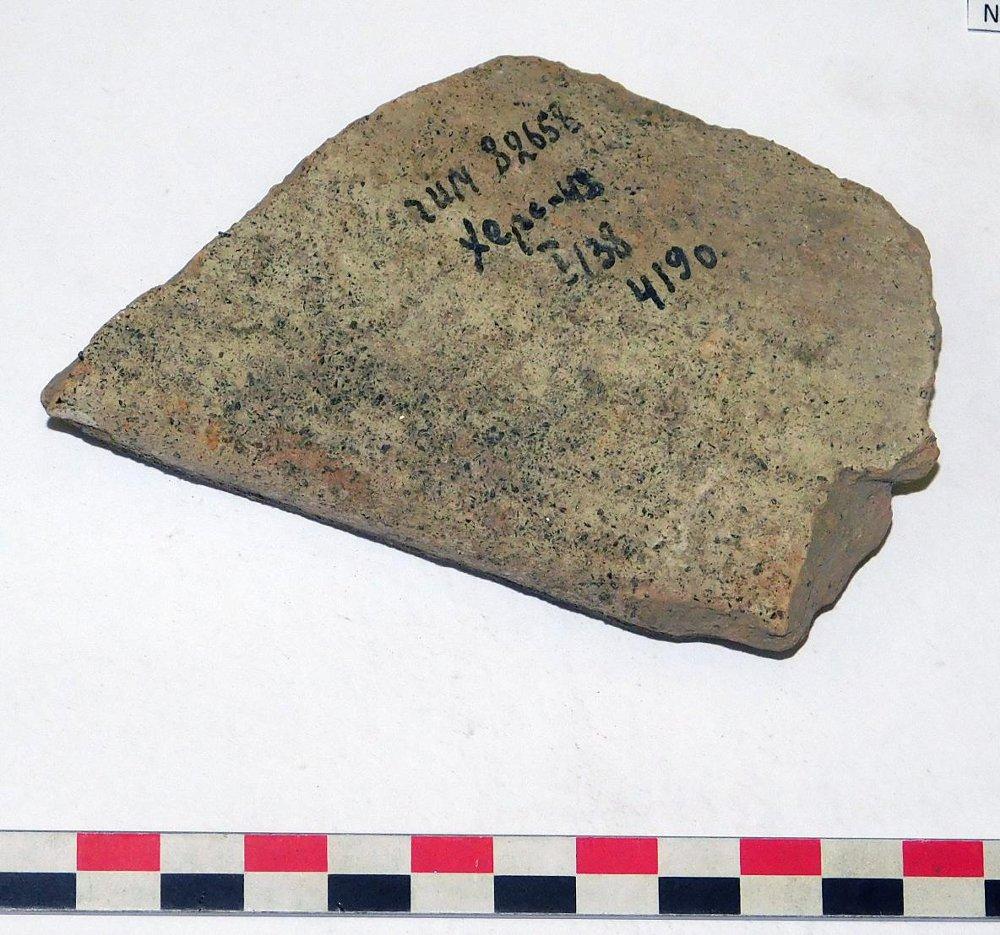 N
гим 82658
Херс-43
I/138
4190